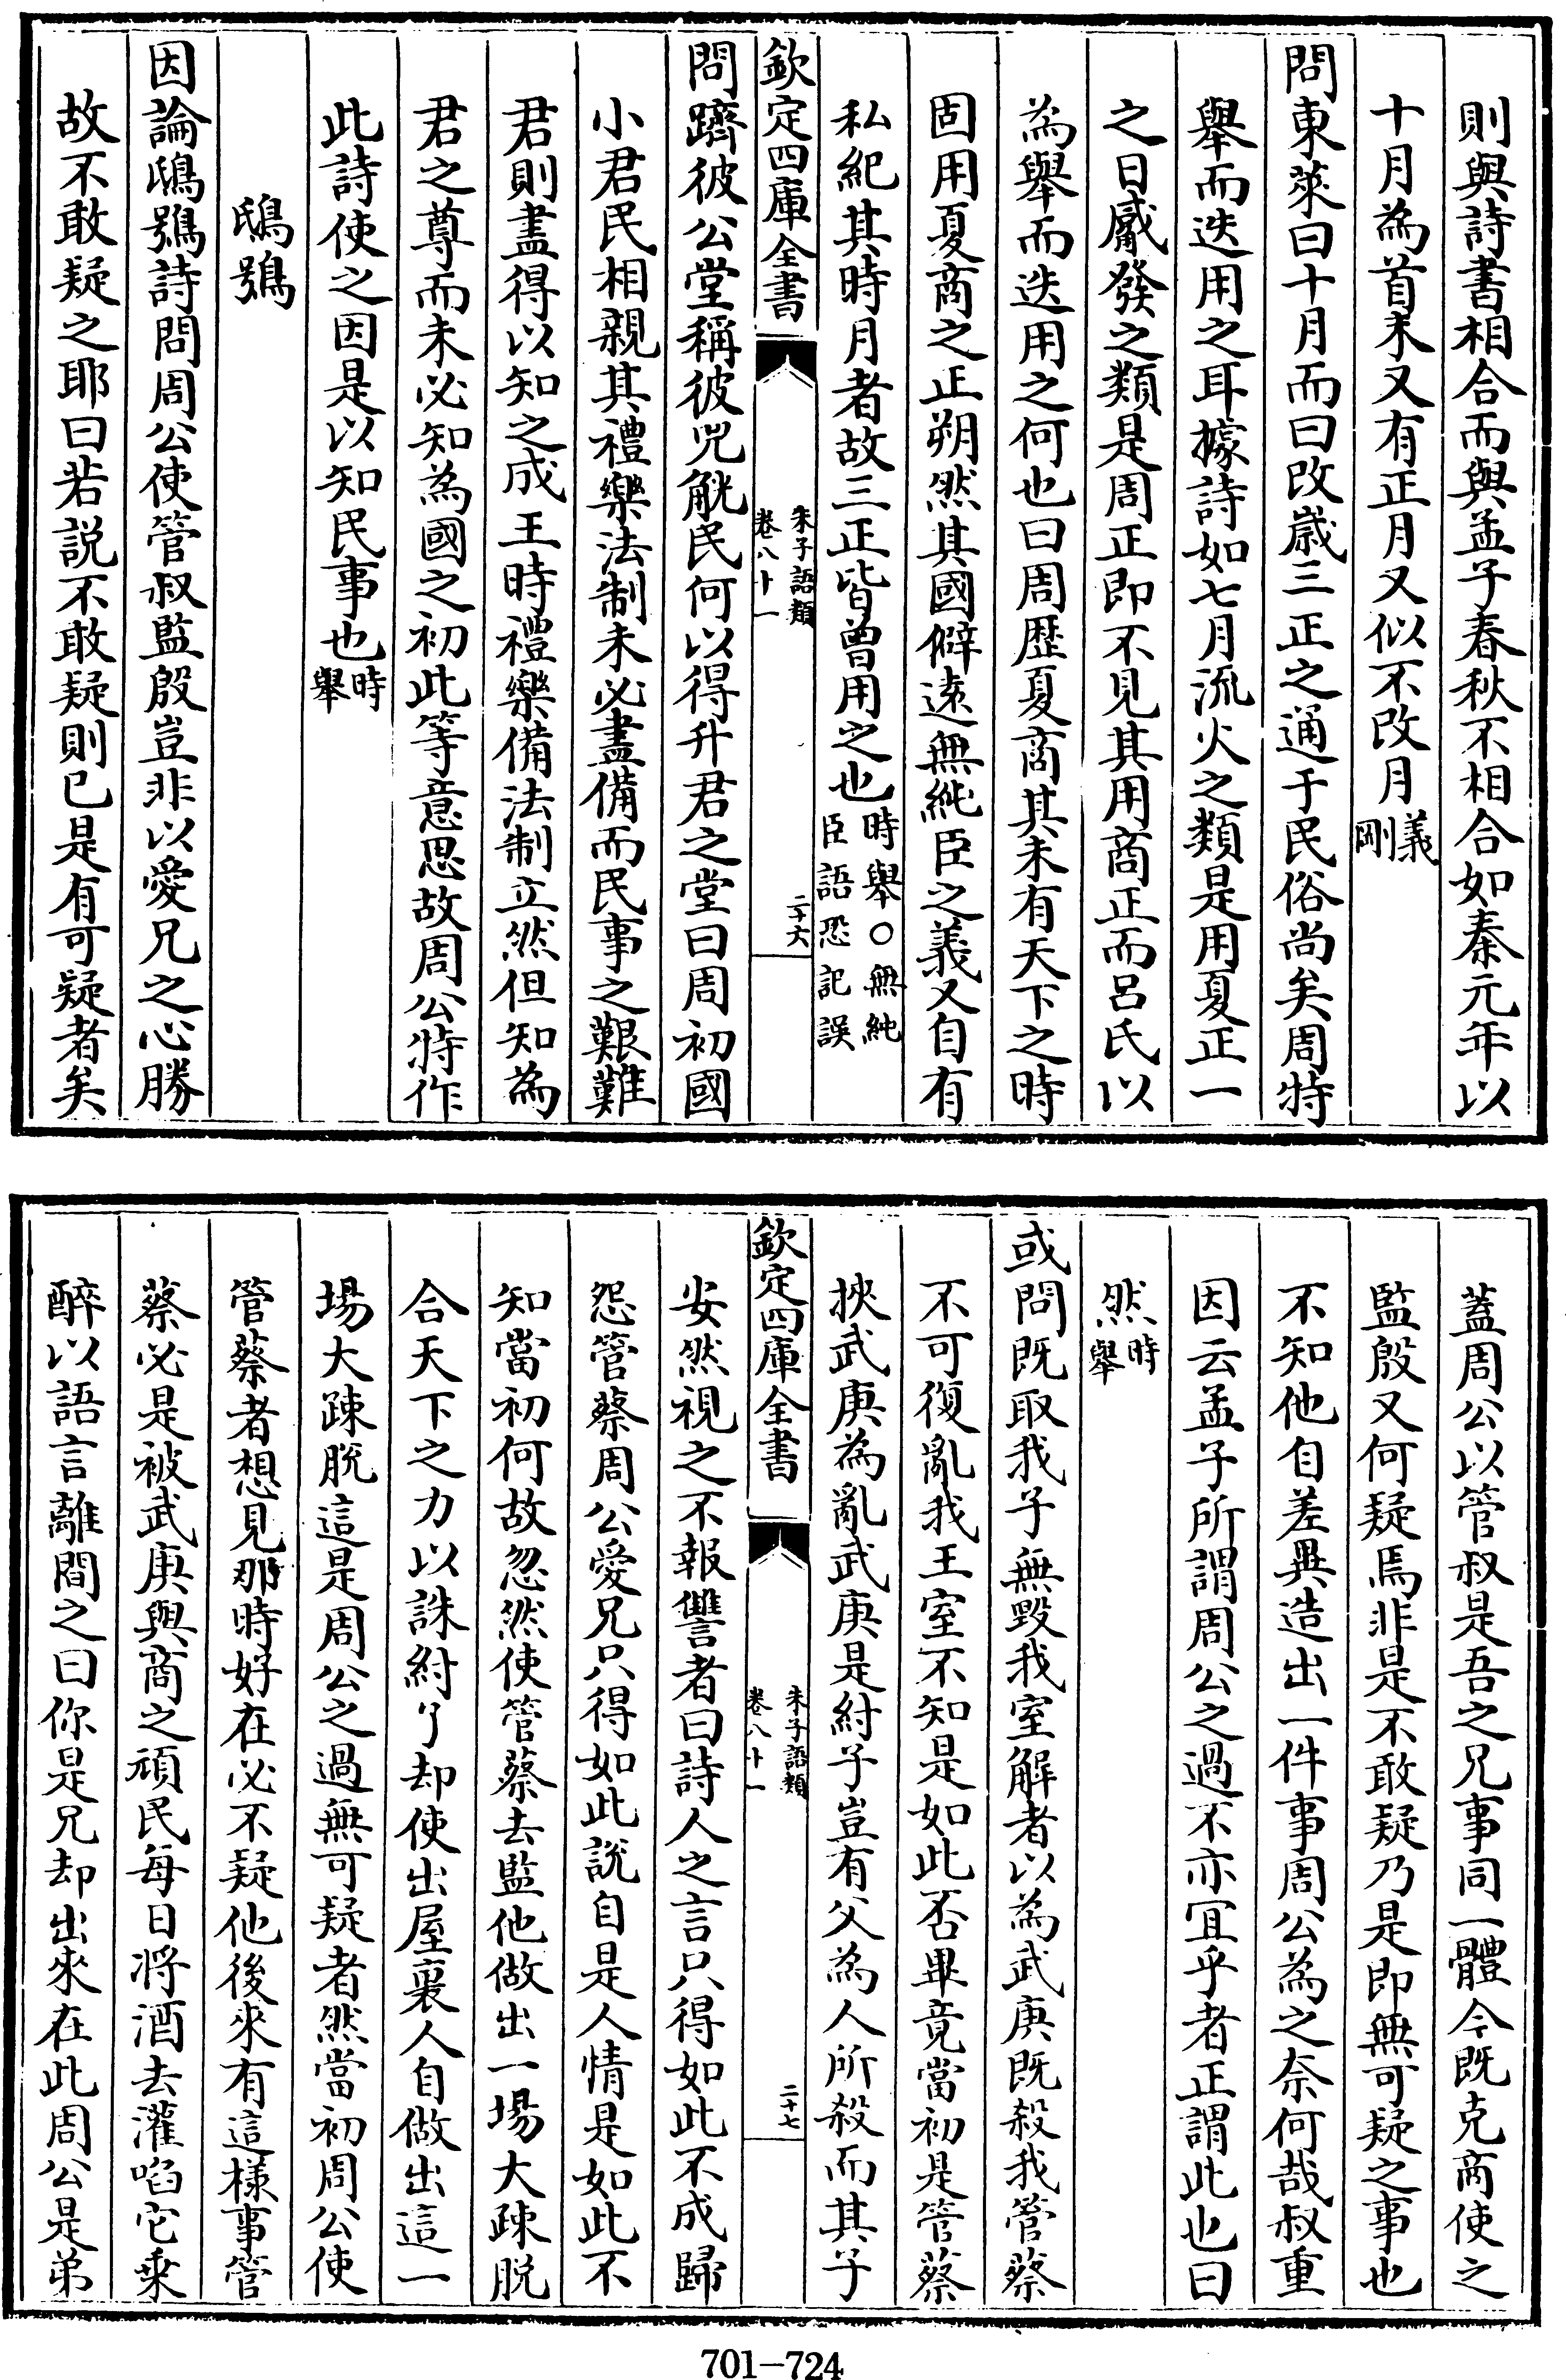 則與詩書相合而與孟子春秋不相合如秦元年以
十月為首末又有正月又似不改月義剛
問東萊曰十月而曰改歲三正之通于民俗尚矣周特
舉而迭用之耳據詩如七月流火之類是用夏正一
之日觱發之類是周正即不見其用商正而呂氏以
為舉而迭用之何也曰周歷夏商其未有天下之時
固用夏商之正朔然其國僻遠無純臣之義又自有
私紀其時月者故三正皆曾用之也時舉○無純臣語恐記誤
欽定四庫全書
朱子語類
卷八十一
二十六
問躋彼公堂稱彼兕觥民何以得升君之堂曰周初國
小君民相親其禮樂法制未必盡備而民事之艱難
君則盡得以知之成王時禮樂備法制立然但知為
君之尊而未必知為國之初此等意思故周公特作
此詩使之因是以知民事也時舉
鴟鴞
因論鴟鴞詩問周公使管叔監殷豈非以愛兄之心勝
故不敢疑之耶曰若說不敢疑則已是有可疑者矣
蓋周公以管叔是吾之兄事同一體今既克商使之
監殷又何疑焉非是不敢疑乃是即無可疑之事也
不知他自差異造出一件事周公為之奈何哉叔重
因云孟子所謂周公之過不亦宜乎者正謂此也曰
然時舉
或問既取我子無毀我室解者以為武庚既殺我管蔡
不可復亂我王室不知是如此否畢竟當初是管蔡
挾武庚為亂武庚是紂子豈有父為人所殺而其子
欽定四庫全書
朱子語類
卷八十一
二十七
安然視之不報讐者曰詩人之言只得如此不成歸
怨管蔡周公愛兄只得如此說自是人情是如此不
知當初何故忽然使管蔡去監他做出一場大疎脫
合天下之力以誅紂了却使出屋裏人自做出這一
場大疎脫這是周公之過無可疑者然當初周公使
管蔡者想見那時好在必不疑他後來有這樣事管
蔡必是被武庚與商之頑民每日將酒去灌啗它乘
醉以語言離間之曰你是兄却出來在此周公是弟
701-724